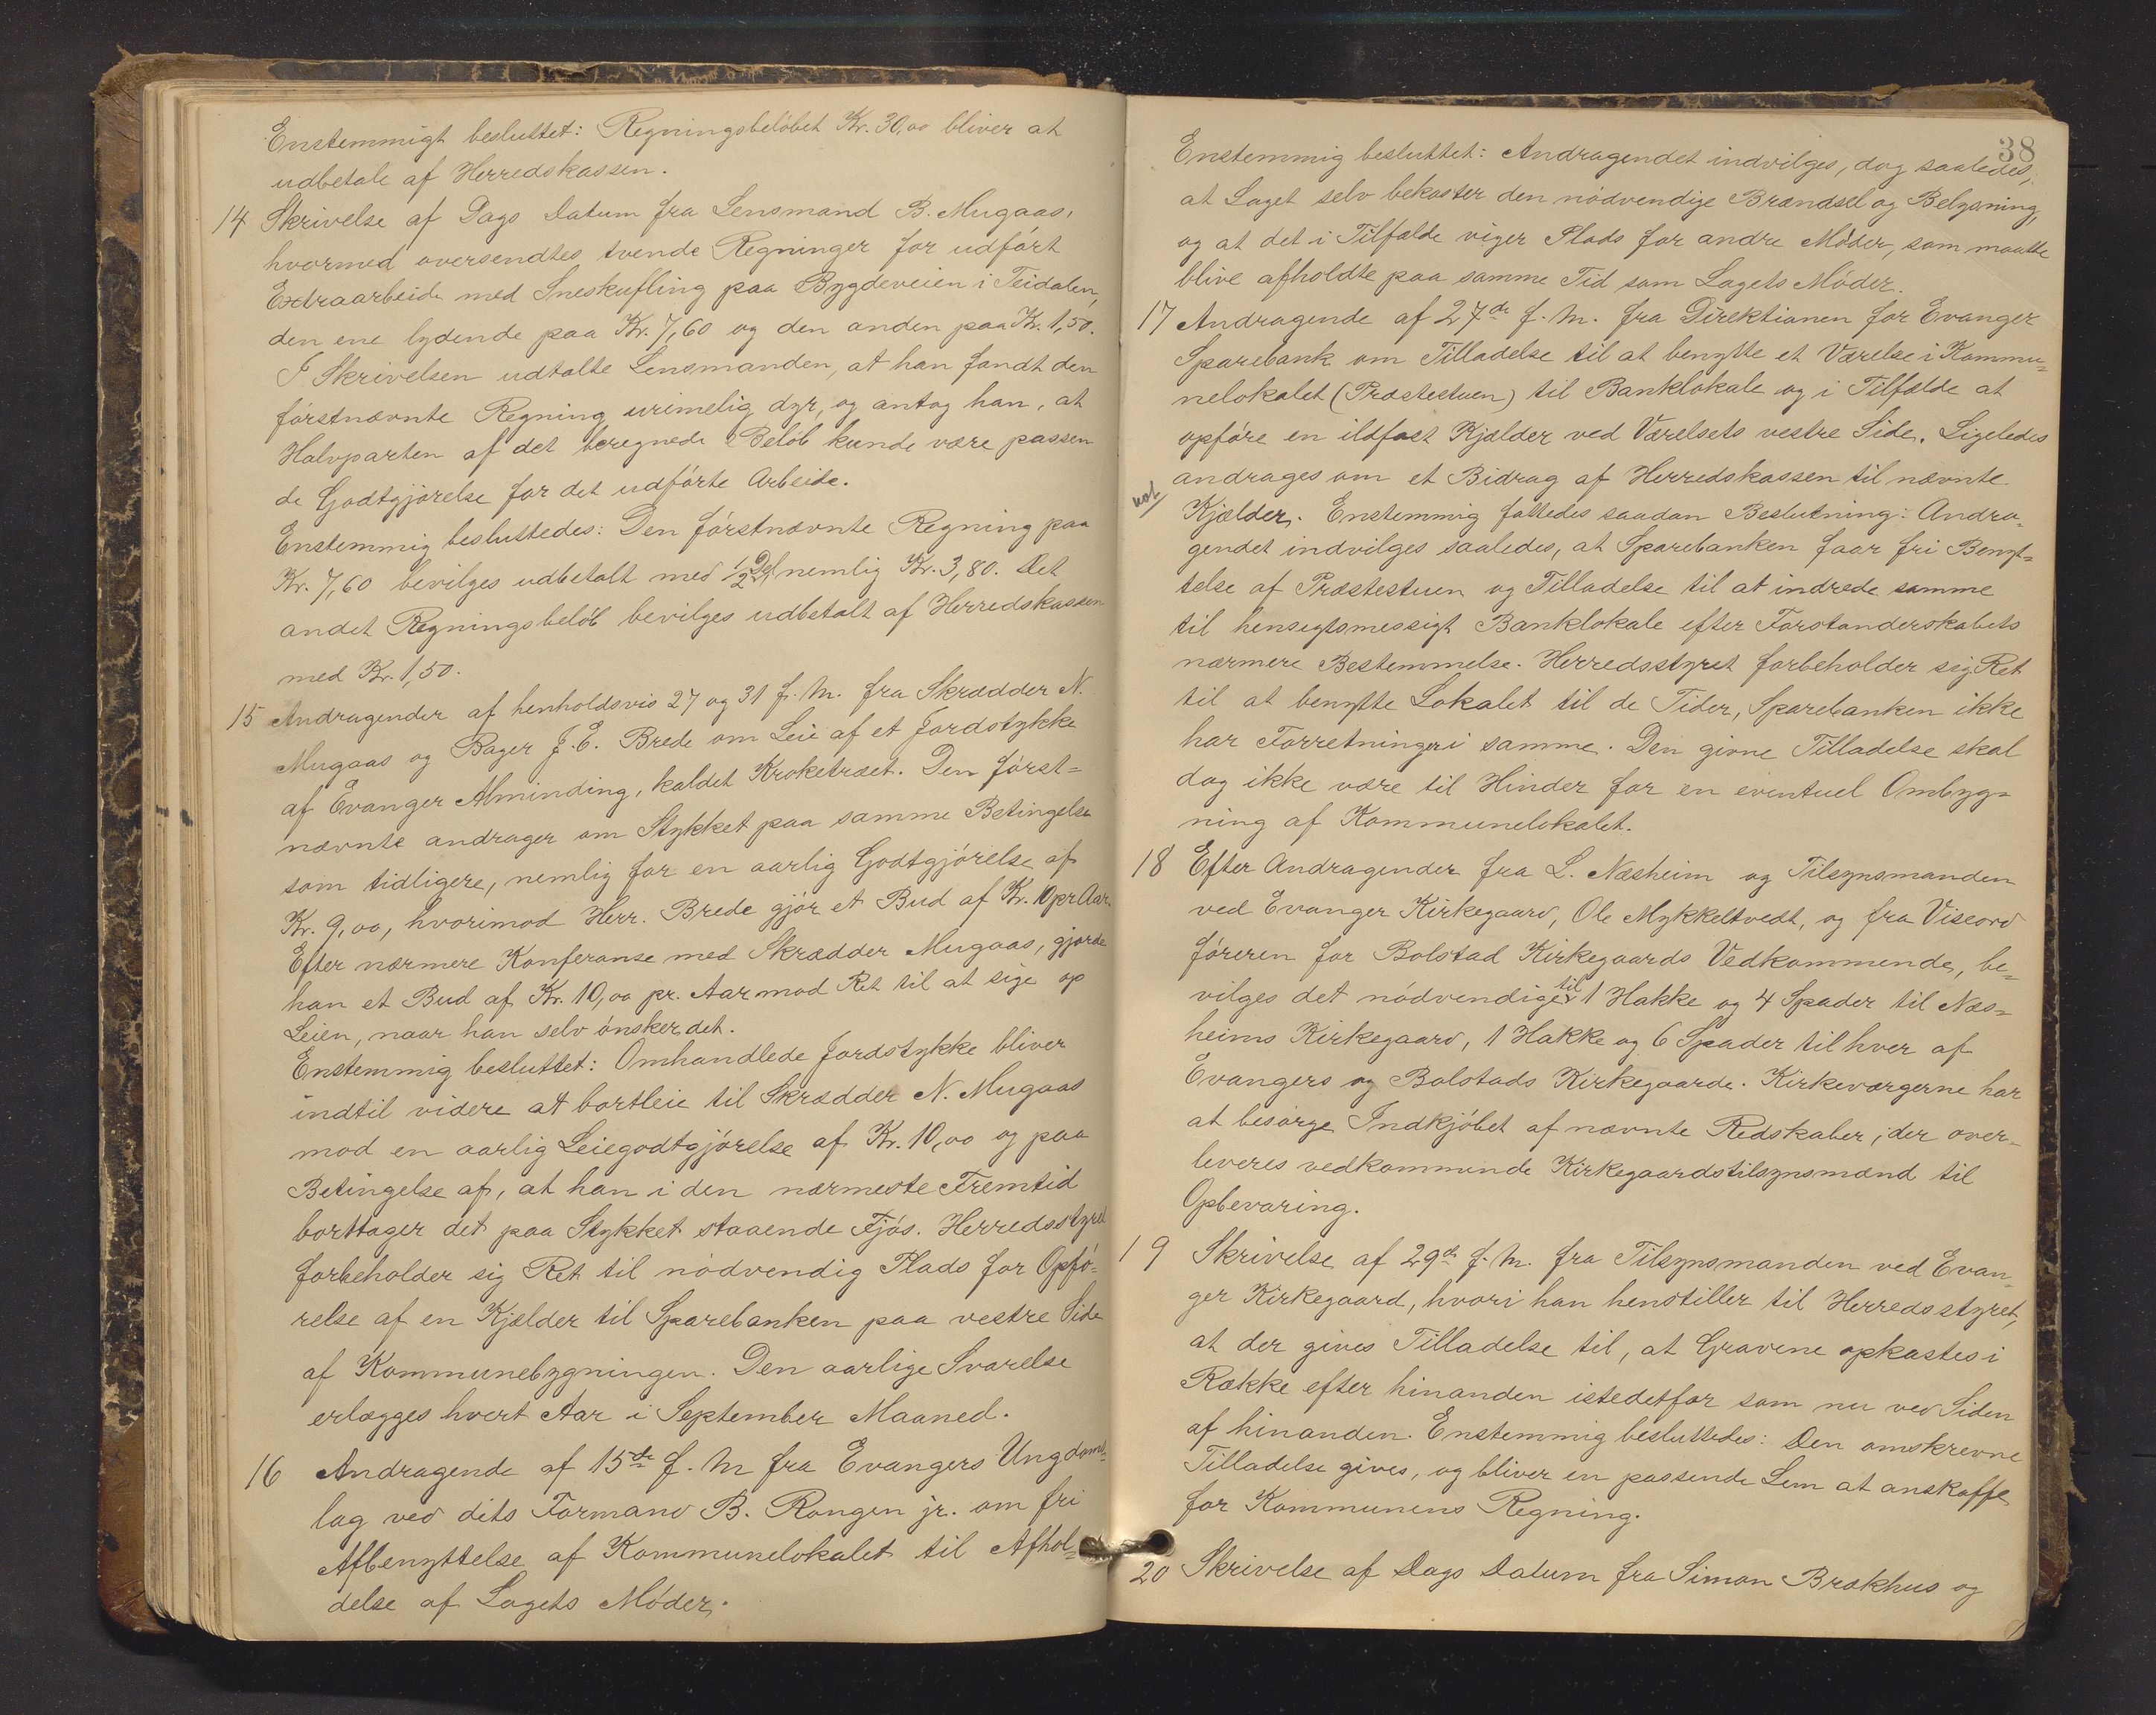 Enstemmigt besluttet: Regningsbeløbet Kr. 30,00 bliver at
udbetale af Herredskassen.
14 Skrivelse af Dags Datum fra Lensmand B. Mugaas,
hvormed oversendtes tvende Regninger for udført
Extraarbeide med Sneskufling paa Bygdeveien i Teidalen,
den ene lydende paa Kr. 7,60 og den anden paa Kr. 1,50.
I Skrivelsen udtalte Lensmanden, at han fandt den
førstnævnte Regning urimelig dyr, og antog han, at
Halvparten af det beregnede Beløb kunde være passen
de Godtgjørelse for det udførte Arbeide.
Enstemmig besluttedes: Den førstnævnte Regning paa
Kr. 7,60 bevilges udbetalt med 1/2 Del, nemlig Kr. 3,80. Det
andet Regningsbeløb bevilges udbetalt af Herredskassen
med Kr. 1,50.
15 Andragender af henholdsvis 27 og 31 f. M. fra Skrædder N.
Mugaas og Bager J. E. Brede om Leie af et Jordstykke
af Evanger Alminding, kaldet Kroketræet. Den først=
nævnte andrager om Stykket paa samme Betingelse
som tidligere, nemlig for en aarlig Godtgjørelse af
Kr. 9,00, hvorimod Herr. Brede gjør et Bud af Kr. 10 pr Aar.
Efter nærmere Konferanse med Skrædder Mugaas, gjorde
han et Bud af Kr. 10,00 pr. Aar mod Ret til at sige op
Leien, naar han selv ønsker det.
Enstemmig besluttet: Omhandlede Jordstykke bliver
indtil videre at bortleie til Skrædder N. Mugaas
mod en aarlig Leiegodtgjørelse af Kr. 10,00 og paa
Betingelse af, at han i den nærmeste Fremtid
borttager det paa Stykket staaende Fjøs. Herredsstyret
forbeholder sig Ret til nødvendig Plads for Opfø-
relse af en Kjælder til Sparebanken paa vestre Side
af Kommunebygningen. Den aarlige Svarelse
erlægges hvert Aar i September Maaned.
16 Andragende af 15de f. M fra Evangers Ungdoms-
lag ved dets Formand B. Rongen jr. om fri
Afbenyttelse af Kommunelokalet til Afhol=
delse af Lagets Møder.
38
Enstemmig besluttet: Andragendet indvilges, dog saaledes,
at Laget selv bekoster den nødvendige Brændsel og Belysning,
og at det i Tilfælde viger Plads for andre Møder, som maatte
blive afholdte paa samme Tid som Lagets Møder.
17 Andragende af 27de f. M. fra Direktionen for Evanger
Sparebank om Tilladelse til at benytte et Værelse i Kommu=
nelokalet (Præstestuen) til Banklokale og i Tilfælde at
opføre en ildfast Kjælder ved Værelsets vestre Side. Ligeledes
andrages om et Bidrag af Herredskassen til nævnte
Kjælder. Enstemmig fattedes saadan Beslutning: Andra-
gendet indvilges saaledes, at Sparebanken faar fri Benyt=
telse af Præstestuen og Tilladelse til at indrede samme
til hensegtsmessigt Banklokale efter Forstanderskabets
nærmere Bestemmelse. Herredsstyret forbeholder sig Ret
til at benytte Lokalet til de Tider, Sparebanken ikke
har Forretninger i samme. Den givne Tilladelse skal
dog ikke være til Hinder for en eventuel Ombyg=
ning af Kommunelokalet.
18 Efter Andragender fra L. Næsheim og Tilsynsmanden
ved Evanger Kirkegaard, Ole Mykkeltvedt, og fra Viseord
føreren for Bolstad Kirkegaards Vedkommende, be-
vilges det nødvendige til 1 Hakke og 4 Spader til Næs=
heims Kirkegaard, 1 Hakke og 6 Spader til hver af
Evangers og Bolstads Kirkegaarde. Kirkeværgerne har
at besørge Indkjøbet af nævnte Redskaber, der over-
leveres vedkommende Kirkegaardstilsynsmænd til
Opbevaring.
19 Skrivelse af 29de f. M. fra Tilsynsmanden ved Evan-
ger Kirkegaard, hvori han henstiller til Herredsstyret,
at der gives Tilladelse til, at Gravene opkastes i
Række efter hinanden istedetfor som nu ved Siden
af hinanden. Enstemmig besluttedes: Den omskrevne
Tilladelse gives, og bliver en passende Lem at anskaffe
for Kommunens Regning.
20 Skrivelse af Dags Datum fra Simon Brækhus og